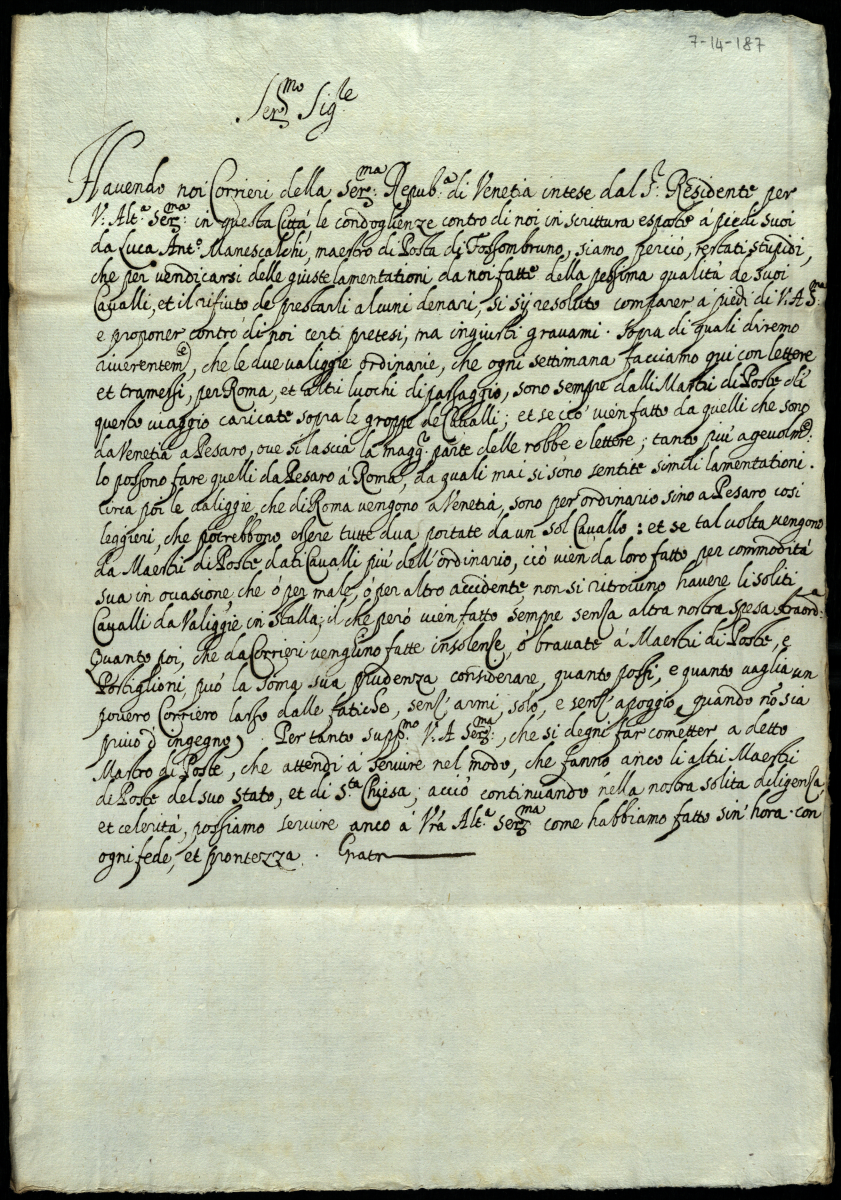 7-14-187
Ser.mo Sig.le
Havendo noi Corrieri della Ser.ma Repub.a di Venetia intese dal S.r Residente per
V. Alt.a Ser.ma in questa Città le condoglienze contro di noi in scrittura esposte à piedi suoi
da Luca Ant.o Manescalchi, maestro di Posta di Fossombruno, siamo perciò restati stupidi,
che per vendicarsi delle giuste lamentationi da noi fatte della pessima qualità de suoi
Cavalli, et il rifiuto de prestarli alcuni denari, si sij resoluto comparer à piedi di V. A. S.ma
e proponer contro di noi certi pretesi, ma ingiusti gravami. Sopra di quali diremo
riverentem.e, che le due valiggie ordinarie, che ogni settimana facciamo qui con lettere
et tramessi, per Roma, et altri luochi di passaggio, sono sempre dalli Mastri di Poste di
questo viaggio caricate sopra le groppe de Cavalli; et se ciò vien fatto da quelli che sono
da Venetia a Pesaro, ove si lascia la magg.r parte delle robbe e lettere; tanto più agevolm.e
lo possono fare quelli da Pesaro à Roma, da quali mai si sono sentite simili lamentationi.
Circa poi le valiggie, che di Roma vengono a Venetia, sono per ordinario sino a Pesaro così
leggieri, che potrebbono essere tutte dua portate da un sol Cavallo: et se tal volta vengono
da Maestri di Poste dati Cavalli più dell'ordinario, ciò vien da loro fatto per commodità
sua in occasione, che ò per male, ò per altro accidente non si ritrovino havere li soliti
Cavalli da Valiggie in stalla; il che però vien fatto sempre senza altra nostra spesa straord.a
Quanto poi, che da Corrieri venghino fatte insolenze, ò bravate à Maestri di Poste, e
Postiglioni, può la soma sua prudenza considerare, quanto possi, e quanto vaglia un
povero Corriero lasso dalle fatiche, senz' armi, solo, e senz' apoggio, quando nõ sia
privo d' ingegno). Per tanto supp.mo V. A Ser.ma, che si degni far cometter a detto
Mastro di Poste, che attendi à servire nel modo, che fanno anco li altri Maestri
de Poste del suo stato, et di S.ta Chiesa; acciò continuando nella nostra solita diligenza,
et celerità, possiamo servire anco à Vrã Alt.a Ser.ma come habbiamo fatto sin' hora con
ogni fede, et prontezza. Gratr